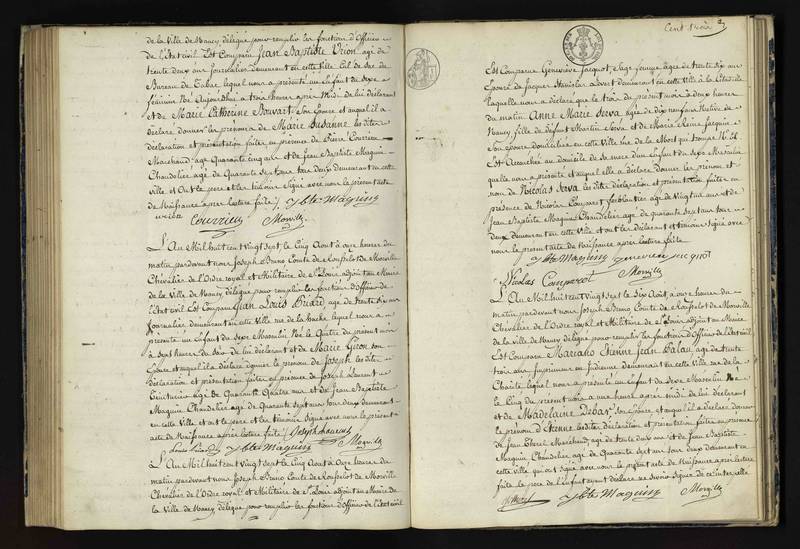 de la Ville de Nancy délégué pour remplir les fonctions d'Officier
de l'état civil Est Comparu Jean Baptiste Orion agé de
trente deux ans journalier demeurant en cette Ville
Bureau de Tabac lequel nous a présenté un Enfant du Sexe
féminin Né Aujourd'hui a trois heures après midi de lui déclarant
et de Marie Catherine Bouvart Son Epouse et auquel il a
déclaré donner les prénoms de Marie Susanne les dites
déclaration et présentation faites en présence de Pierre Courrieu
Marchand agé Quarante cinq ans et de Jean Baptiste Maguin
Chandelier agé de Quarante Sept ans tous deux demeurant en cette
Ville et Ont le pere et les témoins Signé avec nous le présent acte
de Naissance après lecture faite / Jbte Maguin
Courrieu Morville
L'An Mil huit cent Vingt Sept le Cinq Août à onze heures du
matin pardevant nous Joseph Bruno Comte de Rousselot de Morville
Chevalier de l'Ordre royal et Militaire de St Louis adjoint au Maire
de la Ville de Nancy délégué pour remplir les fonctions d'Officier de
l'état civil Est Comparu Jean Louis Picard agé de trente Six ans
Journalier demeurant en cette Ville rue de la hache lequel nous a
présenté un Enfant du Sexe Masculin Né le Quatre du présent mois
à Sept heures du Soir de lui déclarant et de Marie Giron Son
Epouse et auquel il a déclaré donner le prénom de Joseph les dites
déclaration et présentation faites en présence de Joseph Laurent
agé de Quarante Quatre ans et de Jean Baptiste
Maguin Chandelier agé de Quarante Sept ans tous deux demeurant
en cette Ville et ont le pere et les témoins Signé avec nous le présent
acte de Naissance après lecture faite / Joseph Laurent
Jbte Maguin Morville
L'An Mil huit cent Vingt Sept le Cinq Août à Onze heures du
matin pardevant nous Joseph Bruno Comte de Rousselot de Morville
Chevalier de l'Ordre royal et Militaire de St Louis adjoint au Maire de
la Ville de Nancy délégué pour remplir les fonctions d'Officier de l'état civil
Cent trois
Est Comparue Geneviève Jacquot, Sage femme, agée de trente Six ans
Epouse de Jacques Stanislas demeurant en cette Ville à la Citadelle
laquelle nous a déclaré que le trois du présent mois à deux heures
du matin Anne Marie Serva agée de dix neuf ans Native de
Nancy, fille de défunt Martin Serva et de Marie Reine Jacquin
Son épouse domiciliée en cette Ville rue de la
Est Accouchée au domicile de sa mere d'un Enfant du Sexe Masculin
qu'elle nous a présenté et auquel elle a déclaré donner les prénom et
nom de Nicolas Serva les dites déclaration et présentation faites en
présence de Nicolas Comparot agé de Vingt ans et de
Jean Baptiste Maguin Chandelier agé de quarante Sept ans tous
deux demeurant en cette Ville et ont les déclarant et témoins Signé avec
nous le présent acte de Naissance après lecture faite
Jbte Maguin
Nicolas Comparot Morville
L'An Mil huit cent Vingt Sept le Six Août, à onze heures du
matin pardevant nous Joseph Bruno Comte de Rousselot de Morville
Chevalier de l'Ordre royal et Militaire de St Louis adjoint au Maire
de la Ville de Nancy délégué pour remplir les fonctions d'Officier de l'état civil
Est Comparu Etienne Jean agé de trente
trois ans Imprimeur en Indienne demeurant en cette Ville rue de la
Charité lequel nous a présenté un Enfant du Sexe Masculin Né
le Cinq du présent mois a une heure après midi de lui déclarant
et de Madelaine Son Epouse et auquel il a déclaré donner
le prénom d'Etienne les dites déclaration et présentation faites en présence
de Jean agé de trente deux ans et de Jean Baptiste
Maguin Chandelier agé de Quarante Sept ans tous deux demeurant en
cette Ville qui ont Signé avec nous le présent acte de Naissance après lecture
faite le pere de l'Enfant ayant déclaré ne Savoir Signer
Jbte Maguin Morville